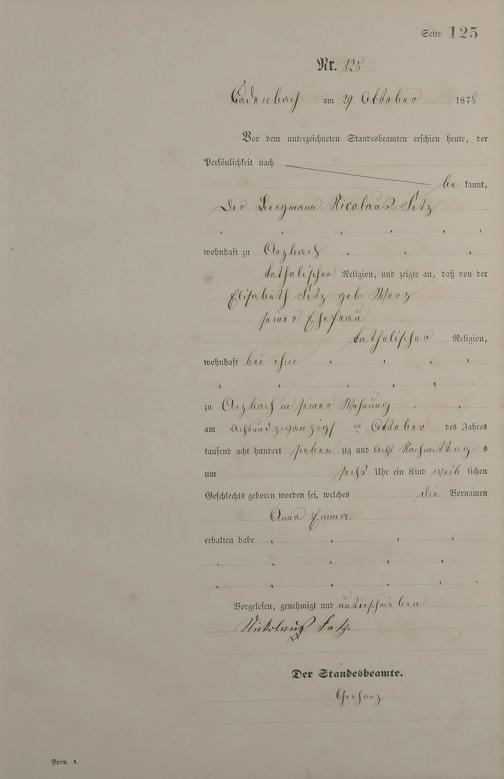 Seite 125
Nr. 125
Cadenbach am 29 Oktober 1878
Vor dem unterzeichneten Standesbeamten erschien heute, der
Persönlichkeit nach
be kannt,
Der Bergmann Nicolaus
wohnhaft zu Arzbach
katholischer Religion, und zeigte an, daß von der
Elisabeth geb
seiner Ehefrau
katholischer Religion,
wohnhaft bei ihm
zu Arzbach in seiner Wohnung
am achtundzwanzigst en Oktober des Jahres
tausend acht hundert sieben zig und acht Nachmittag s
um sechs Uhr ein Kind weib lichen
Geschlechts geboren worden sei, welches die Vornamen
Anna Emma
erhalten habe
Vorgelesen, genehmigt und unterschrieben
Nikolaus
Der Standesbeamte.
Form. A.